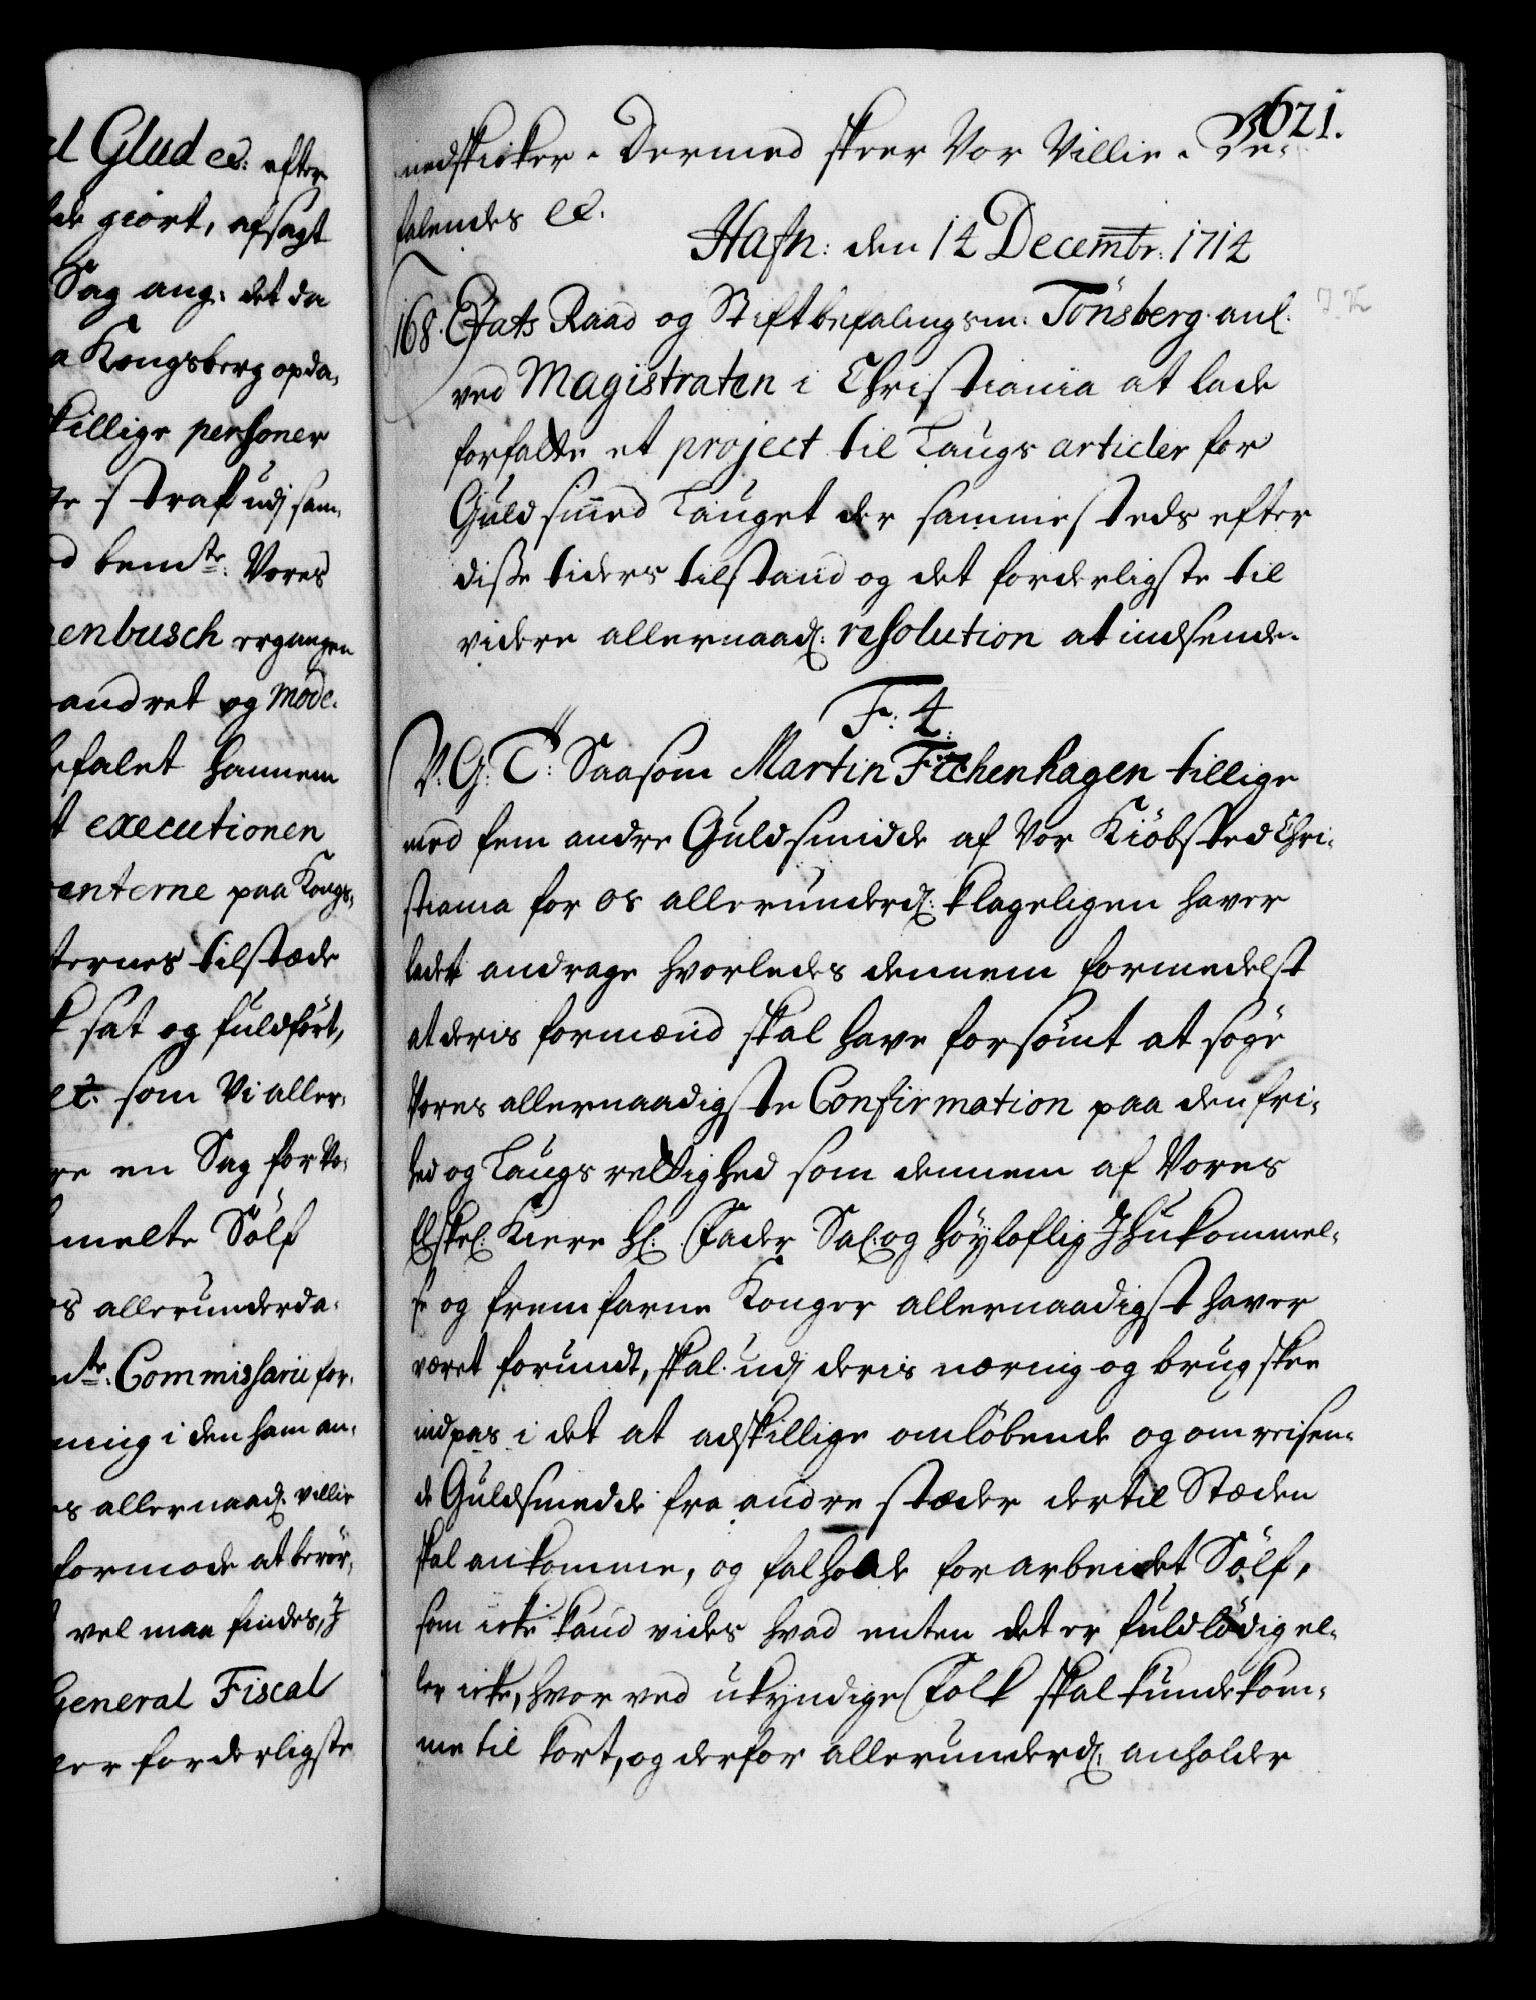 el Glud etc: efter
de giört, afsagt
Sag ang: det da
a Kongsberg opda,
skillige personer
te straf udj sam,
d bemte: Vores
enbusch ergangen
andret og Mode-
befalet hannem
t executionen
enterne paa Kongs,
ternes tilstæde
k sat og fuldfört,
etc. som Vi aller,
re en Sag for Vo,
smelte Sölf
os allerunderda,
mte: Commissarii for,
ning i den ham an,
es allernaad: villie
formode at berör,
vel maa findes, J
General Fiscal
ler forderligste
621.
nedskicker. Dermed skeer Vor Villie. Be-
falendes etc.
Hafn: den 14 Decembr: 1714
168. Etats Raad og Stiftbefalingsm: Tönsberg anl.
ved Magistraten i Christiania at lade
forfatte et project til Laugs articler for
Guldsmed Lauget der sammesteds efter
disse tiders tilstand og det forderligste til
videre allernaad: resolution at indsende.
F: 4.
V. G: T: Saasom Martin Fichenhagen tillige
med fem andre Guldsmidde af Vor Kiöbsted Chri-
stiania for os allerunderd: klageligen haver
ladet andrage hvorledes dennem formedelst
at deris formænd skal have forsömt at söge
Vores allernaadigste Confirmation paa den fri-
hed og Laugs rettighed som dennem af Vores
Elskel: Kiere Hr: Fader Sal: og höyloflig Jhukommel-
se og fremfarne Konger allernaadigst haver
været forundt, skal udj deris næring og brug skee
indpas i det at adskillige omlöbende og omreisen-
de Guldsmedde fra andre stæder dertil Stæden
skal ankomme, og falholde forarbeidet Sölf,
som icke kand vides hvad enten det er fuldlödig el-
ler icke, hvorved ukyndige Folk skal kunde kom-
me til kort, og derfor allerunderd: anholder